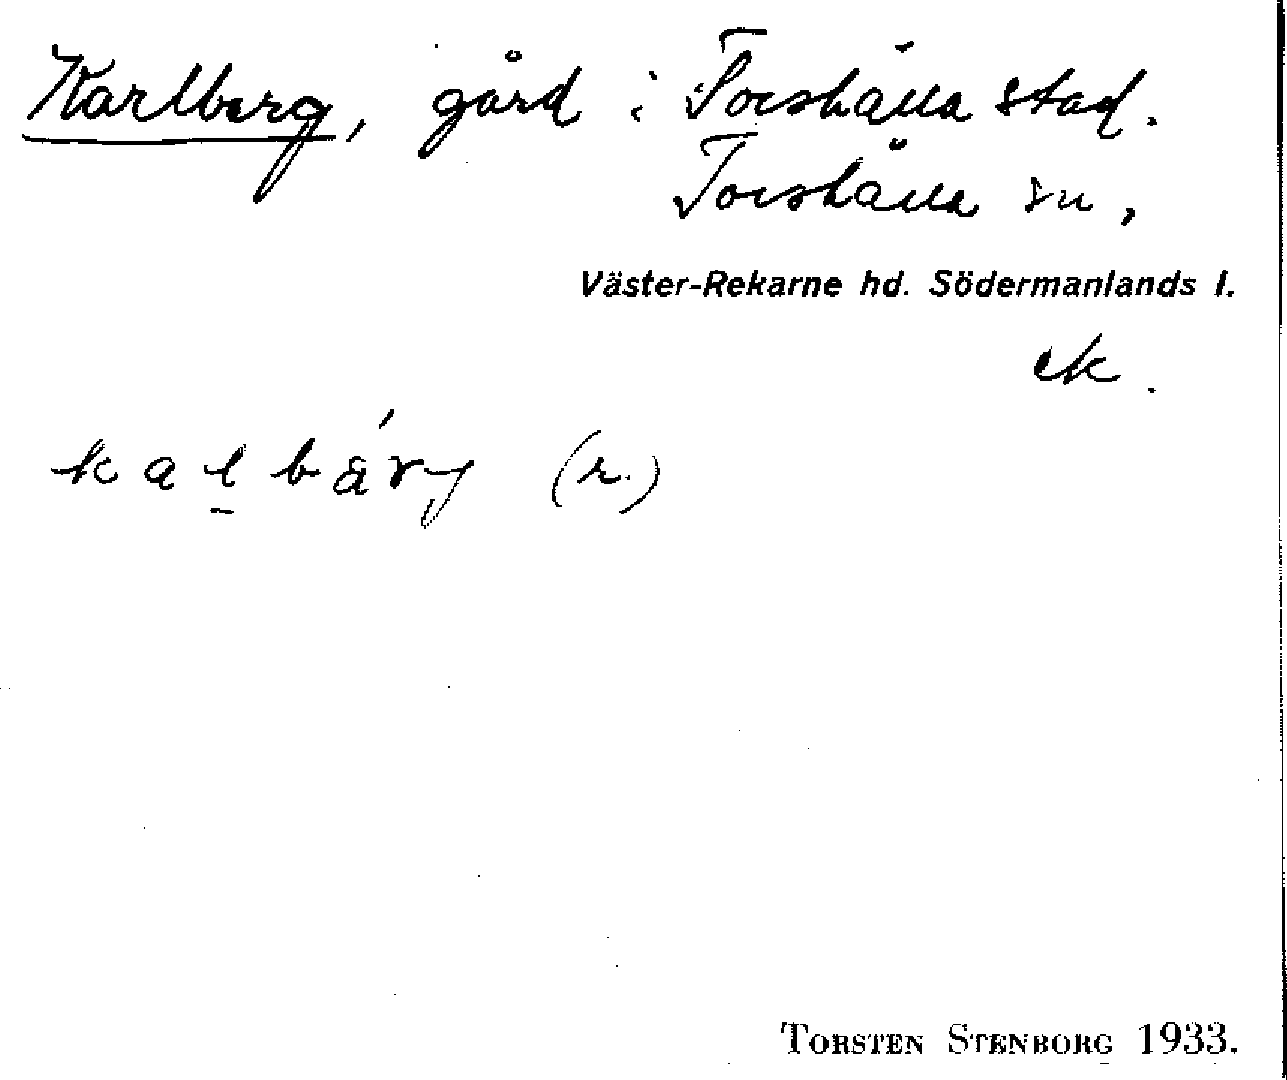 Karlberg, gård i Torshälla stad.
Torshälla sn,
Väster-Rekarne hd. Södermanlands l.
ek.
kalbärj (r.)
TORSTEN STENBORG 1933.